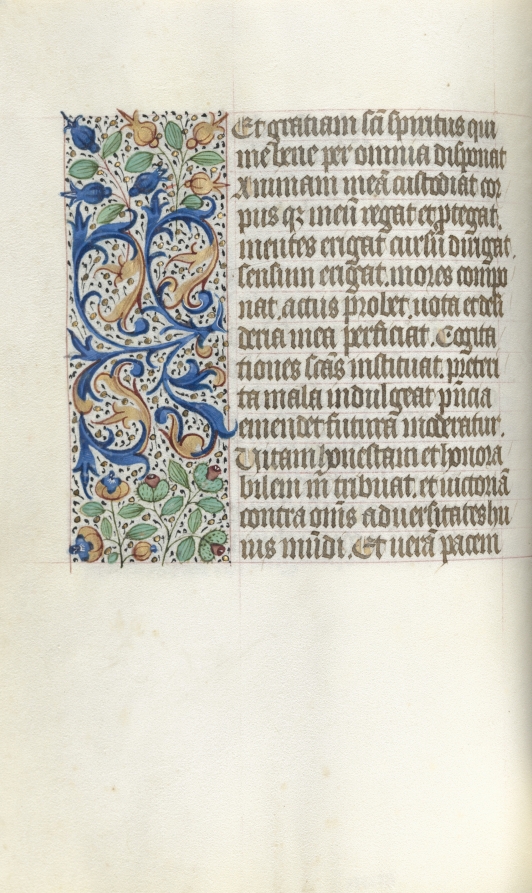 Et gratiam sc̃i spiritus qui
me bene per omnia disponat
Animam meã custodiat cor
pus qꝫ meũ regat et ꝓtegat.
mentes erigat cursũ dirigat.
sensum erigat. mores compo
nat. actus probet. uota et desi
deria mea perficiat. Cogita
tiones sc̃as instituat. preteri
ta mala indulgeat pñcia
emendet futura moderatur.
Uitam honestam et honora
bilem m tribuat. et uictoriã
contra oms̃ aduersitates hu
ius mũdi. Et uerã pacem